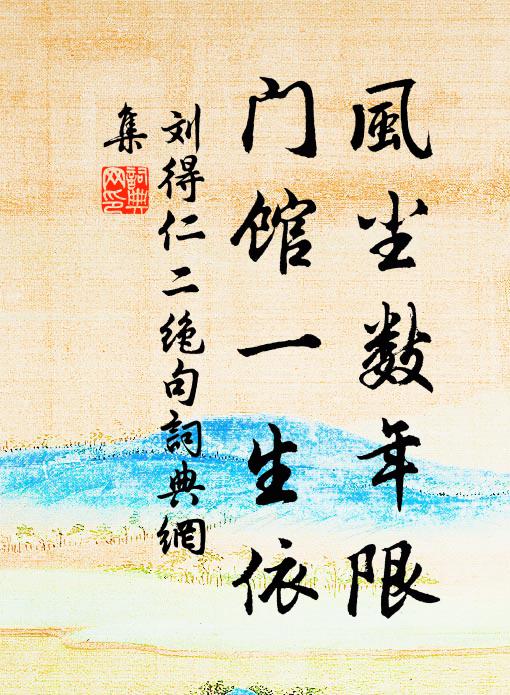 風尘数年限
门馆一生依
刘得仁二绝句詞典網
集
詞典
网印